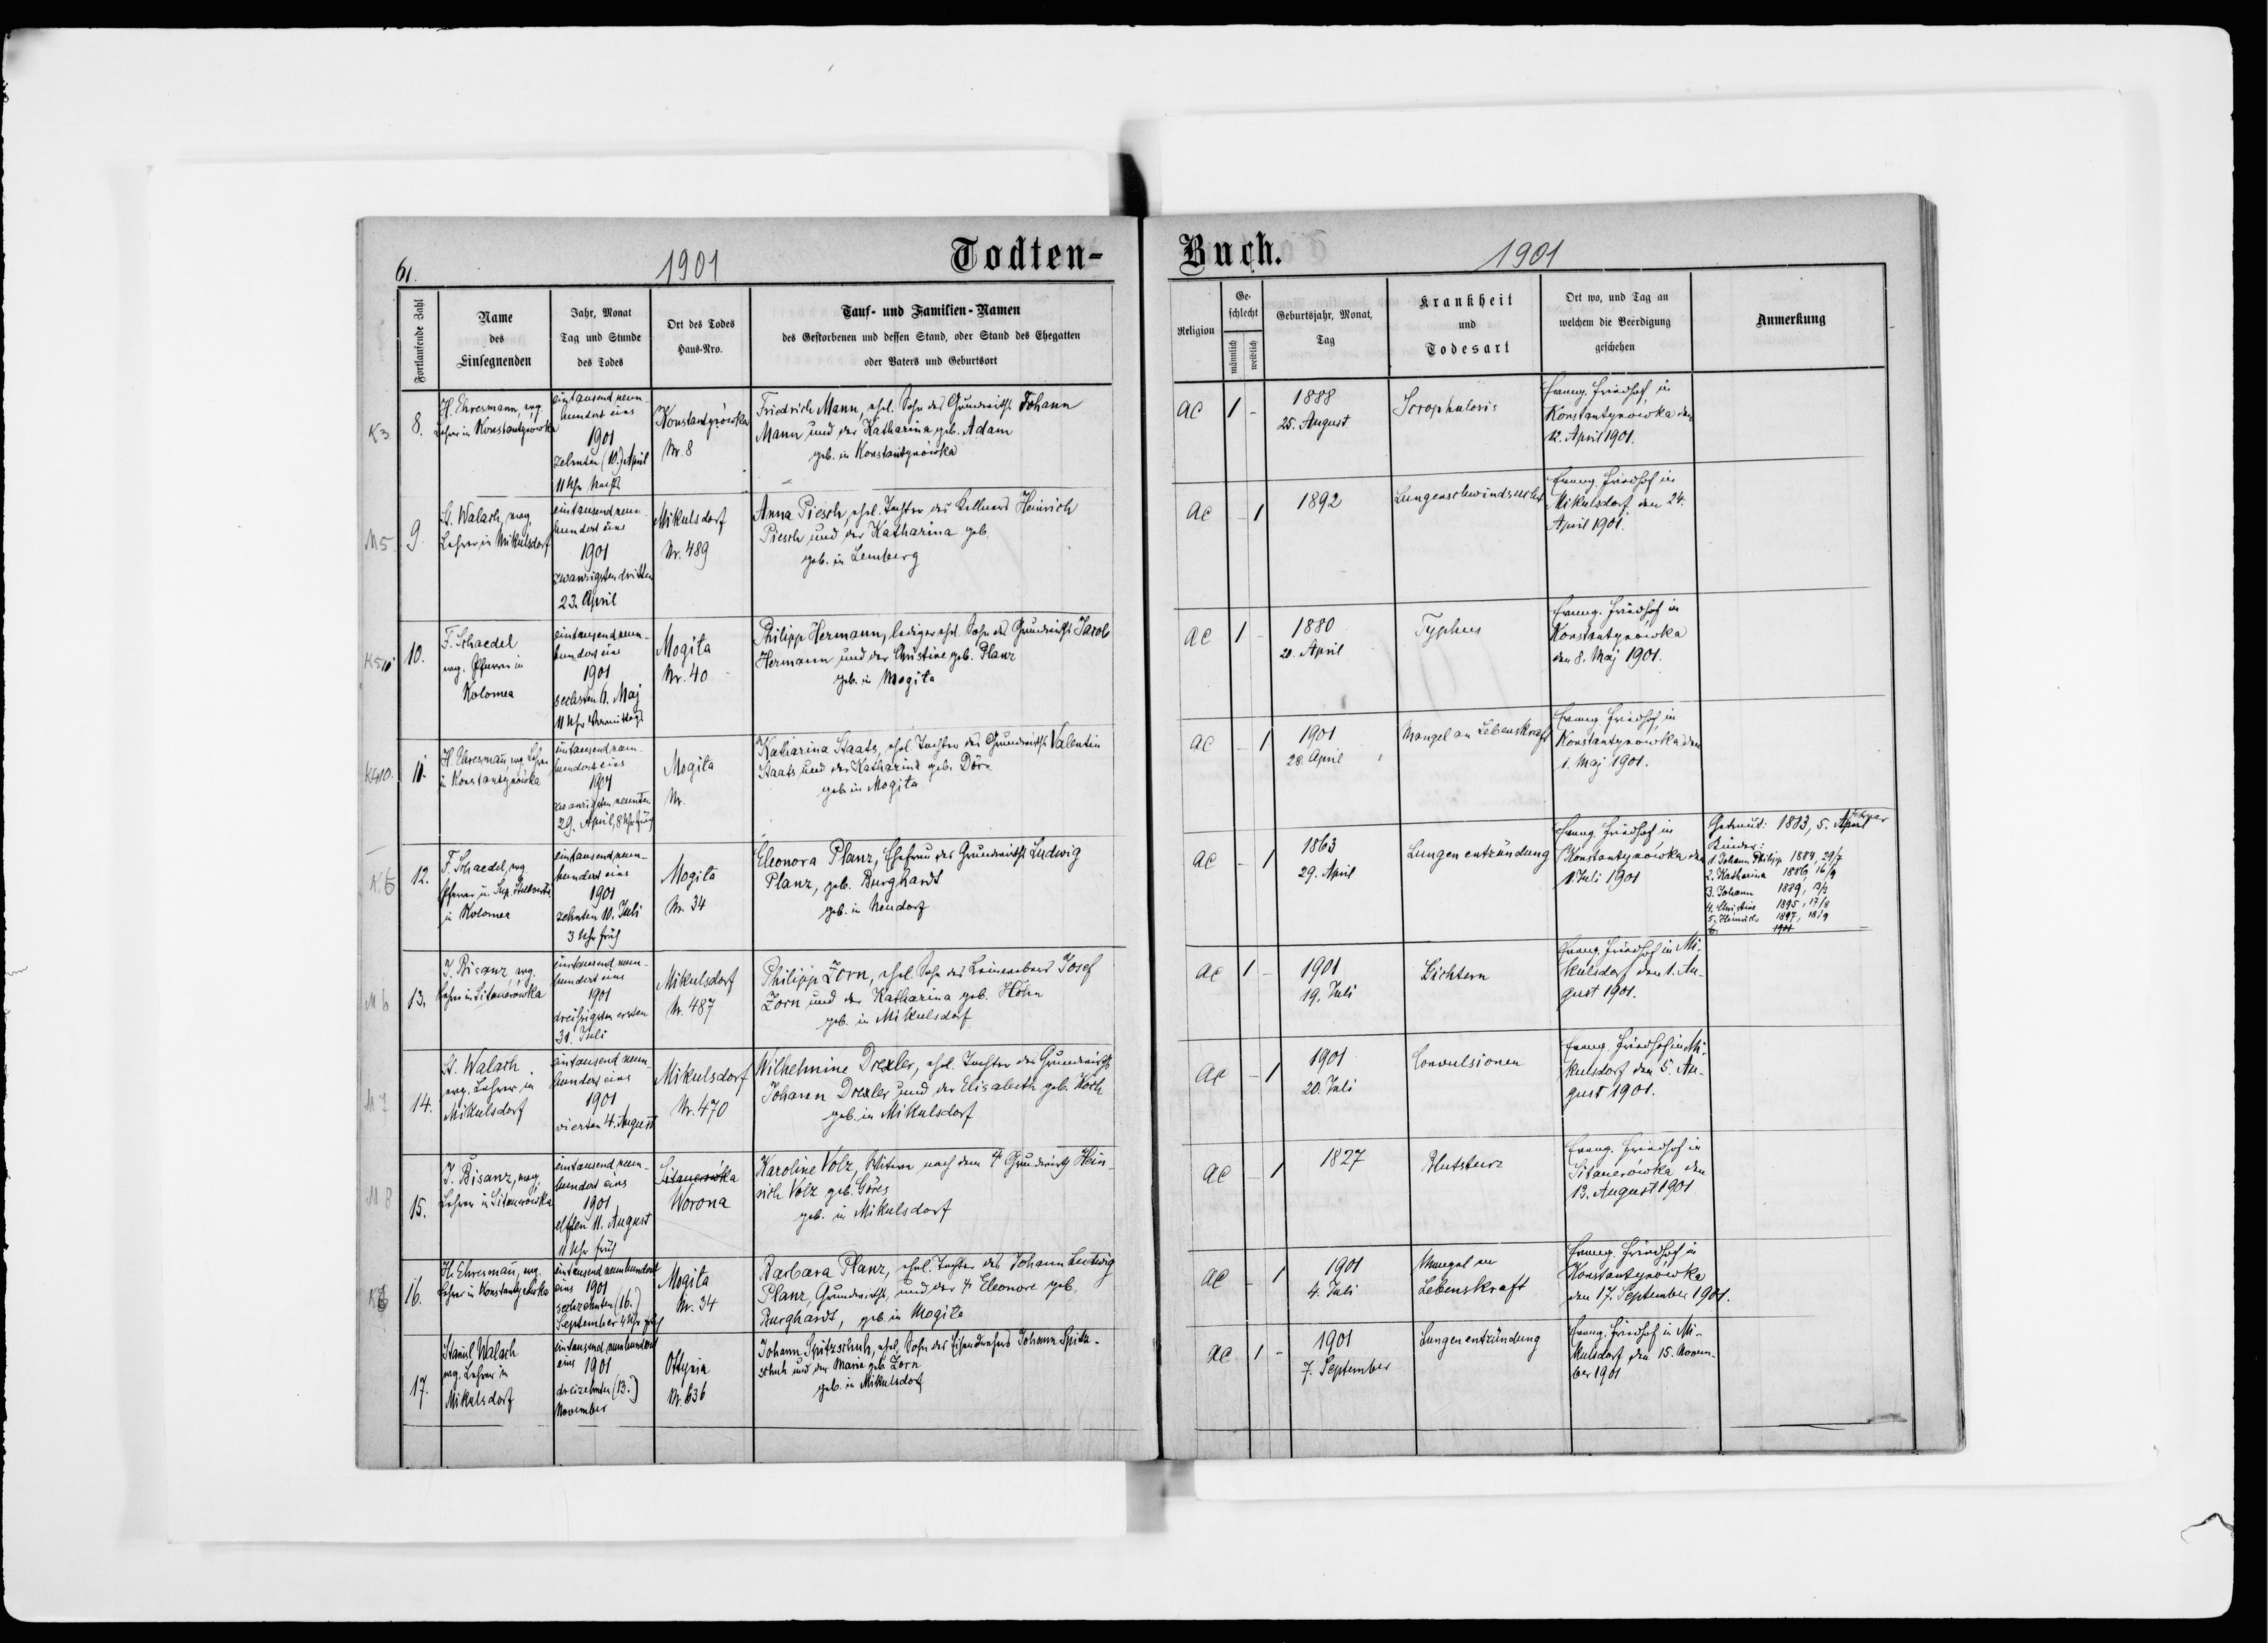 61.
1901
Todten-
Fortlaufende Zahl
Name
des
Einsegnenden
Jahr, Monat
Tag und Stunde
des Todes
Ort des Todes
Haus-Nro.
Tauf- und Familien-Namen
des Gestorbenen und dessen Stand, oder Stand des Ehegatten
oder Vaters und Geburtsort
K3
8.
H. Ehresmann, evg.
Lehrer in Konstantynowka
eintausend neun-
hundert eins
1901
zehnten (10.) April
11 Uhr
Konstantynówka
Nr. 8
Friedrich Mann, ehel. Sohn des Grundwirths Johann
Mann und der Katharina geb. Adam
geb. in Konstantynówka
M5
9.
St. Walach, evg.
Lehrer in Mikulsdorf
eintausend neun-
hundert eins
1901
zwanzigsten dritten
23. April
Mikulsdorf
Nr. 489
Anna Piesch, ehel. Tochter des Kellners Heinrich
Piesch und der Katharina geb.
geb. in Lemberg
10.
F. Schaedel
evg. Pfarrer in
Kolomea
eintausend neun-
hundert eins
1901
sechsten 6. Maj
11 Uhr Vormittags
Mogita
Nr. 40
Philipp Hermann, lediger ehel. Sohn des Grundwirths Jacob
Hermann und der Christine geb. Planz
geb. in Mogita
11.
H. Ehresmann, evg. Lehrer
in Konstantynówka
eintausend neun-
hundert eins
1901
zwanzigsten neunten
29. April, 8 Uhr früh
Mogita
Nr.
Katharina Staats, ehel. Tochter des Grundwirths Valentin
Staats und der Katharina geb. Dörr
geb. in Mogita
K6
12.
F. Schaedel, evg.
Pfarrer u. Sup. Stellvertr.
in Kolomea
eintausend neun-
hundert eins
1901
zehnten 10. Juli
3 Uhr früh
Mogita
Nr. 34
Eleonora Planz, Ehefrau des Grundwirths Ludwig
Planz, geb. Burghardt
geb. in Neudorf
M 6
13.
J. Bisanz, evg.
Lehrer in Sitauerówka
eintausend neun-
hundert eins
1901
dreißigsten ersten
31. Juli
Mikulsdorf
Nr. 487
Philipp Zorn, ehel. Sohn des Leinwebers Josef
Zorn und der Katharina geb. Höhn
geb. in Mikulsdorf
M 7
14.
St. Walach
evg. Lehrer in
Mikulsdorf
eintausend neun-
hundert eins
1901
vierten 4. August
Mikulsdorf
Nr. 470
Wilhelmine Drexler, ehel. Tochter des Grundwirths
Johann Drexler und der Elisabeth geb. Koch
geb. in Mikulsdorf
M 8
15.
J. Bisanz, evg.
Lehrer in Sitauerówka
eintausend neun-
hundert eins
1901
elften 11. August
11 Uhr früh
Sitauerówka
Worona
Karoline Volz, Witwe nach dem † Grundwirth Hein-
rich Volz geb. Göres
geb. in Mikulsdorf
16.
H. Ehresmann, evg.
Lehrer in Konstantynówka
eintausend neunhundert
eins 1901
sechzehnten (16.)
September 4 Uhr früh
Mogita
Nr. 34
Barbara Planz, ehel. Tochter des Johann Ludwig
Planz, Grundwirths, und der † Eleonore geb.
Burghardt, geb. in Mogita
17.
Stanisl Walach
evg. Lehrer in
Mikulsdorf
eintausend neunhundert
eins 1901
dreizehnten (13.)
November
Ottynia
Nr. 636
Johann Spitzschuh, ehel. Sohn des Eisendrehers Johann Spitz-
schuh und der Maria geb. Zorn
geb. in Mikulsdorf
Buch.
1901
Religion
Ge-
schlecht
männlich
weiblich
Geburtsjahr, Monat,
Tag
Krankheit
und
Todesart
Ort wo, und Tag an
welchem die Beerdigung
geschehen
Anmerkung
AC
1
-
1888
25. August
Scrophulosis
Evang. Friedhof, in
Konstantynówka den
12. April 1901.
AC
-
1
1892
Lungenschwindsucht
Evang. Friedhof in
Mikulsdorf den 24.
April 1901.
AC
1
-
1880
20. April
Typhus
Evang. Friedhof in
Konstantynówka
den 8. Maj 1901.
AC
-
1
1901
28. April
Mangel an Lebenskraft
Evang. Friedhof, in
Konstantynówka den
1. Maj 1901.
AC
-
1
1863
29. April
Lungenentzündung
Evang. Friedhof in
Konstantynówka den
Juli 1901
Getraut: 1883, 5. April Februar
Kinder:
1. Johann Philipp 1884, 29/7
2. Katharina 1886, 16/9
3. Johann 1889, 13/2
4. Christine 1895, 17/8
5. Heinrich 1897, 18/9
6. 1901
AC
1
-
1901
19. Juli
Gichtern
Evang. Friedhof in Mi-
kulsdorf den 1. Au-
gust 1901.
AC
-
1
1901
20. Juli
Convulsionen
Evang. Friedhof in Mi-
kulsdorf den 5. Au-
gust 1901.
AC
-
1
1827
Blutsturz
Evang. Friedhof in
Sitauerówka den
13. August 1901
AC
-
1
1901
4. Juli
Mangel an
Lebenskraft
Evang. Friedhof in
Konstantynówka
den 17. September 1901.
AC
1
-
1901
7. September
Lungenentzündung
Evang. Friedhof in Mi-
kulsdorf den 15. Novem-
ber 1901